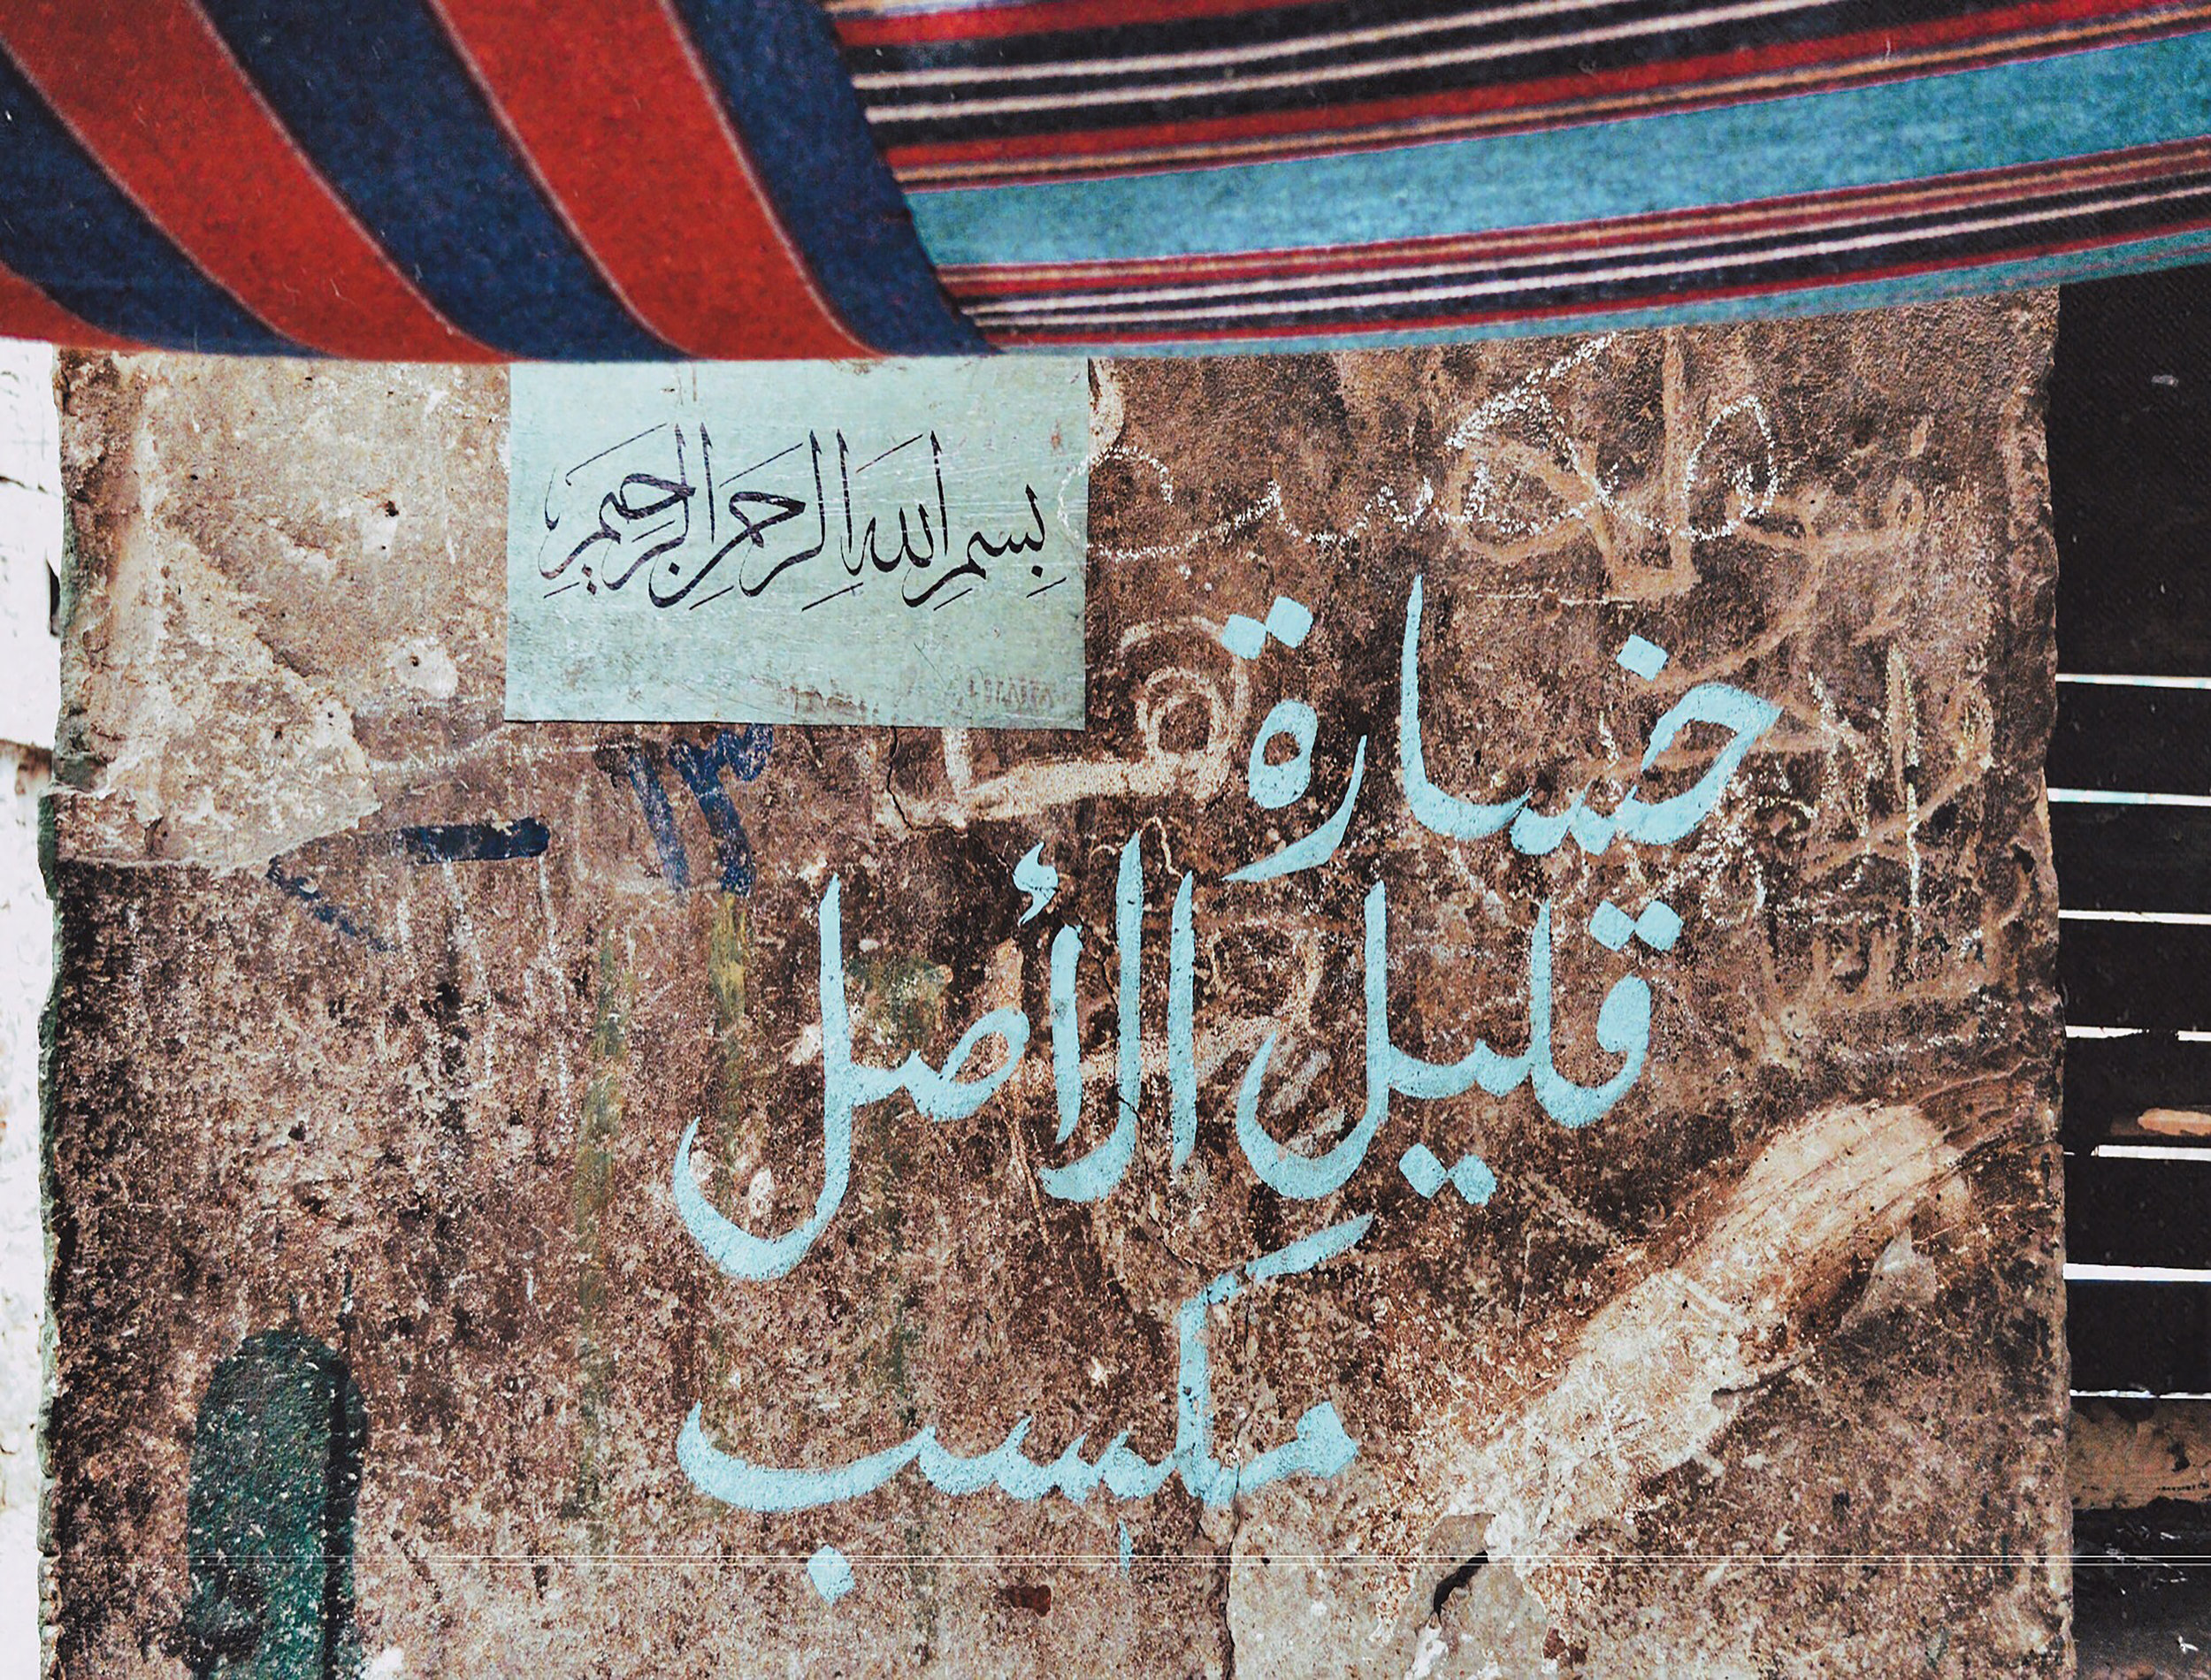 بِسْمِ اللهِ الرَّحْمٰنِ الرَّحِيْمِ
خسارة
قليل الأصل
مكسب
١٣